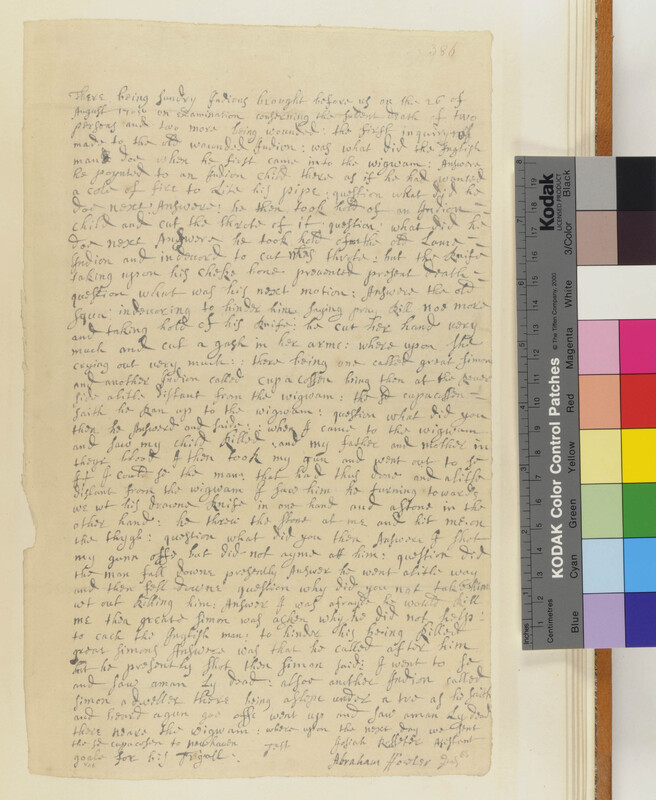 386
There being sundry Indians brought before us on the 26 of
August on Examination conserning the sudent death of two
persons and two more being wounded: the first inquiry
made to the old wounded Indian: was what did the English
man doe when he first came into the wigwam: Answere
he poynted to an Indian child there as if he had wanted
a cole of fire to lite his pipe: question what did he
doe next Answere: he then took hold of an Indian
child and cut the throte of it: question: what did he
doe next Answere he took hold of the old Lame
Indian and indevord to cut his throte: but the knife
taking upon his cheke bone prevented present death
question whatt was his next motion: Answere the old
squa indevoring to hinder him saying pray kill noe more
and taking hold of his knife: he cut her hand very
much and cut a gash in her arme: where upon she
crying out very much:: there being one called great simon
and another Indian called cupacosson being then at the River
side alitle distant from the wigwam: the sd cupacosson
saith he Ran up to the wigwam: question what did you
then he Answerd and saide: when I came to the wigwam
and saw my child killed: and my father and mother in
theyr blood I then took my gun and went out to se
if I could se the man: that had thus done and alitle
distant from the wigwam I saw him he turning towards
me wt his drawne knife in one hand and a stone in the
other hand: he threw the stone at me and hit me on
the thygh: question what did you then Answere I shot
my gunn offe but did not ayme att him: question did
the man fall downe presently Answer he went alitle way
and then fell downe question why did you not take him
wt out killing him: Answer I was afrayd he would kill
me then greate simon was asken why he did not
to cach the English man: to hinder his being killed
great simons Answere was that he called after him
but he presently shot then simon said: I went to se
and saw aman ly dead: alsoe another Indian called
simon a dweller there being aslepe under a tre as he saith
and heard agun goe offe went up and saw aman ly dead
there neare the wigwam: where upon the next day we sent
the sd cupacosson to newhaven Test Josiah Assistant
goale for his Tryall. Abraham